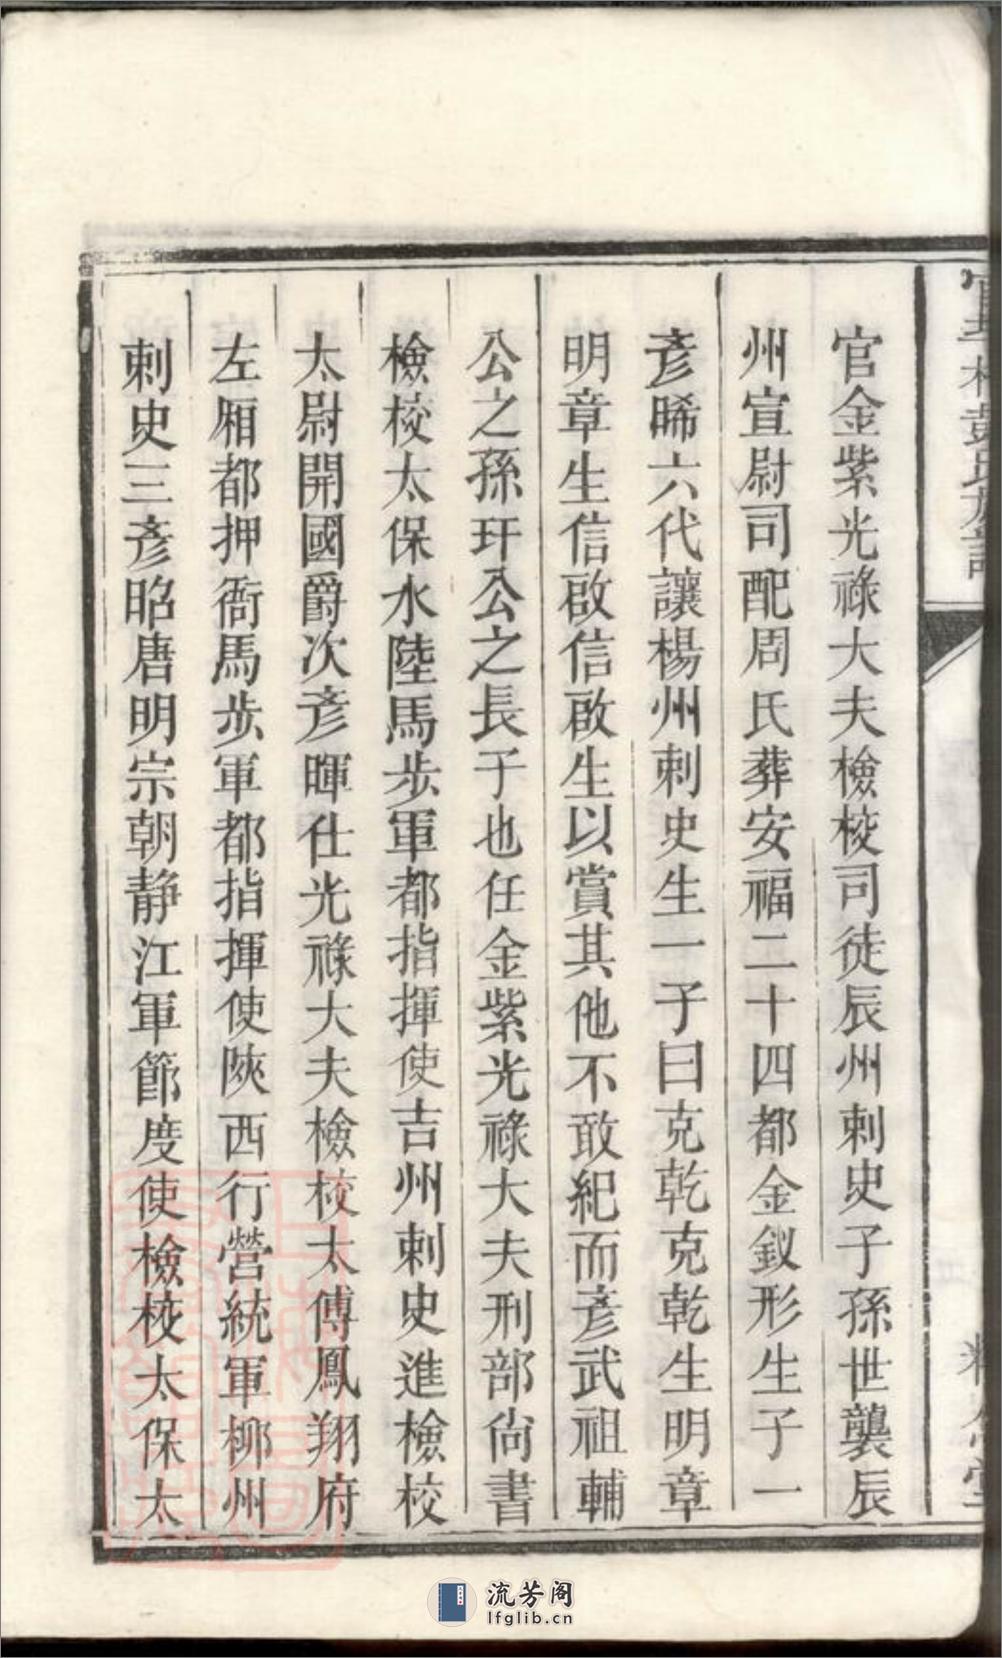 官金紫光祿大夫檢校司徒辰州刺史子孫世襲辰
州宣尉司配周氏葬安福二十四都金釵形生子一
彥晞六代讓楊州刺史生一子曰克乾克乾生明章
明章生信啟信啟生以賞其他不敢紀而彥武祖輔
公之孫玕公之長子也任金紫光祿大夫刑部尙書
檢校太保水陸馬步軍都指揮使吉州刺史進檢校
太尉開國爵次彥暉仕光祿大夫檢校太傅鳳翔府
左厢都押衙馬步軍都指揮使陝西行營統軍柳州
刺史三彥昭唐明宗朝静江軍節度使檢校太保太
流芳阁
lfglib.cn